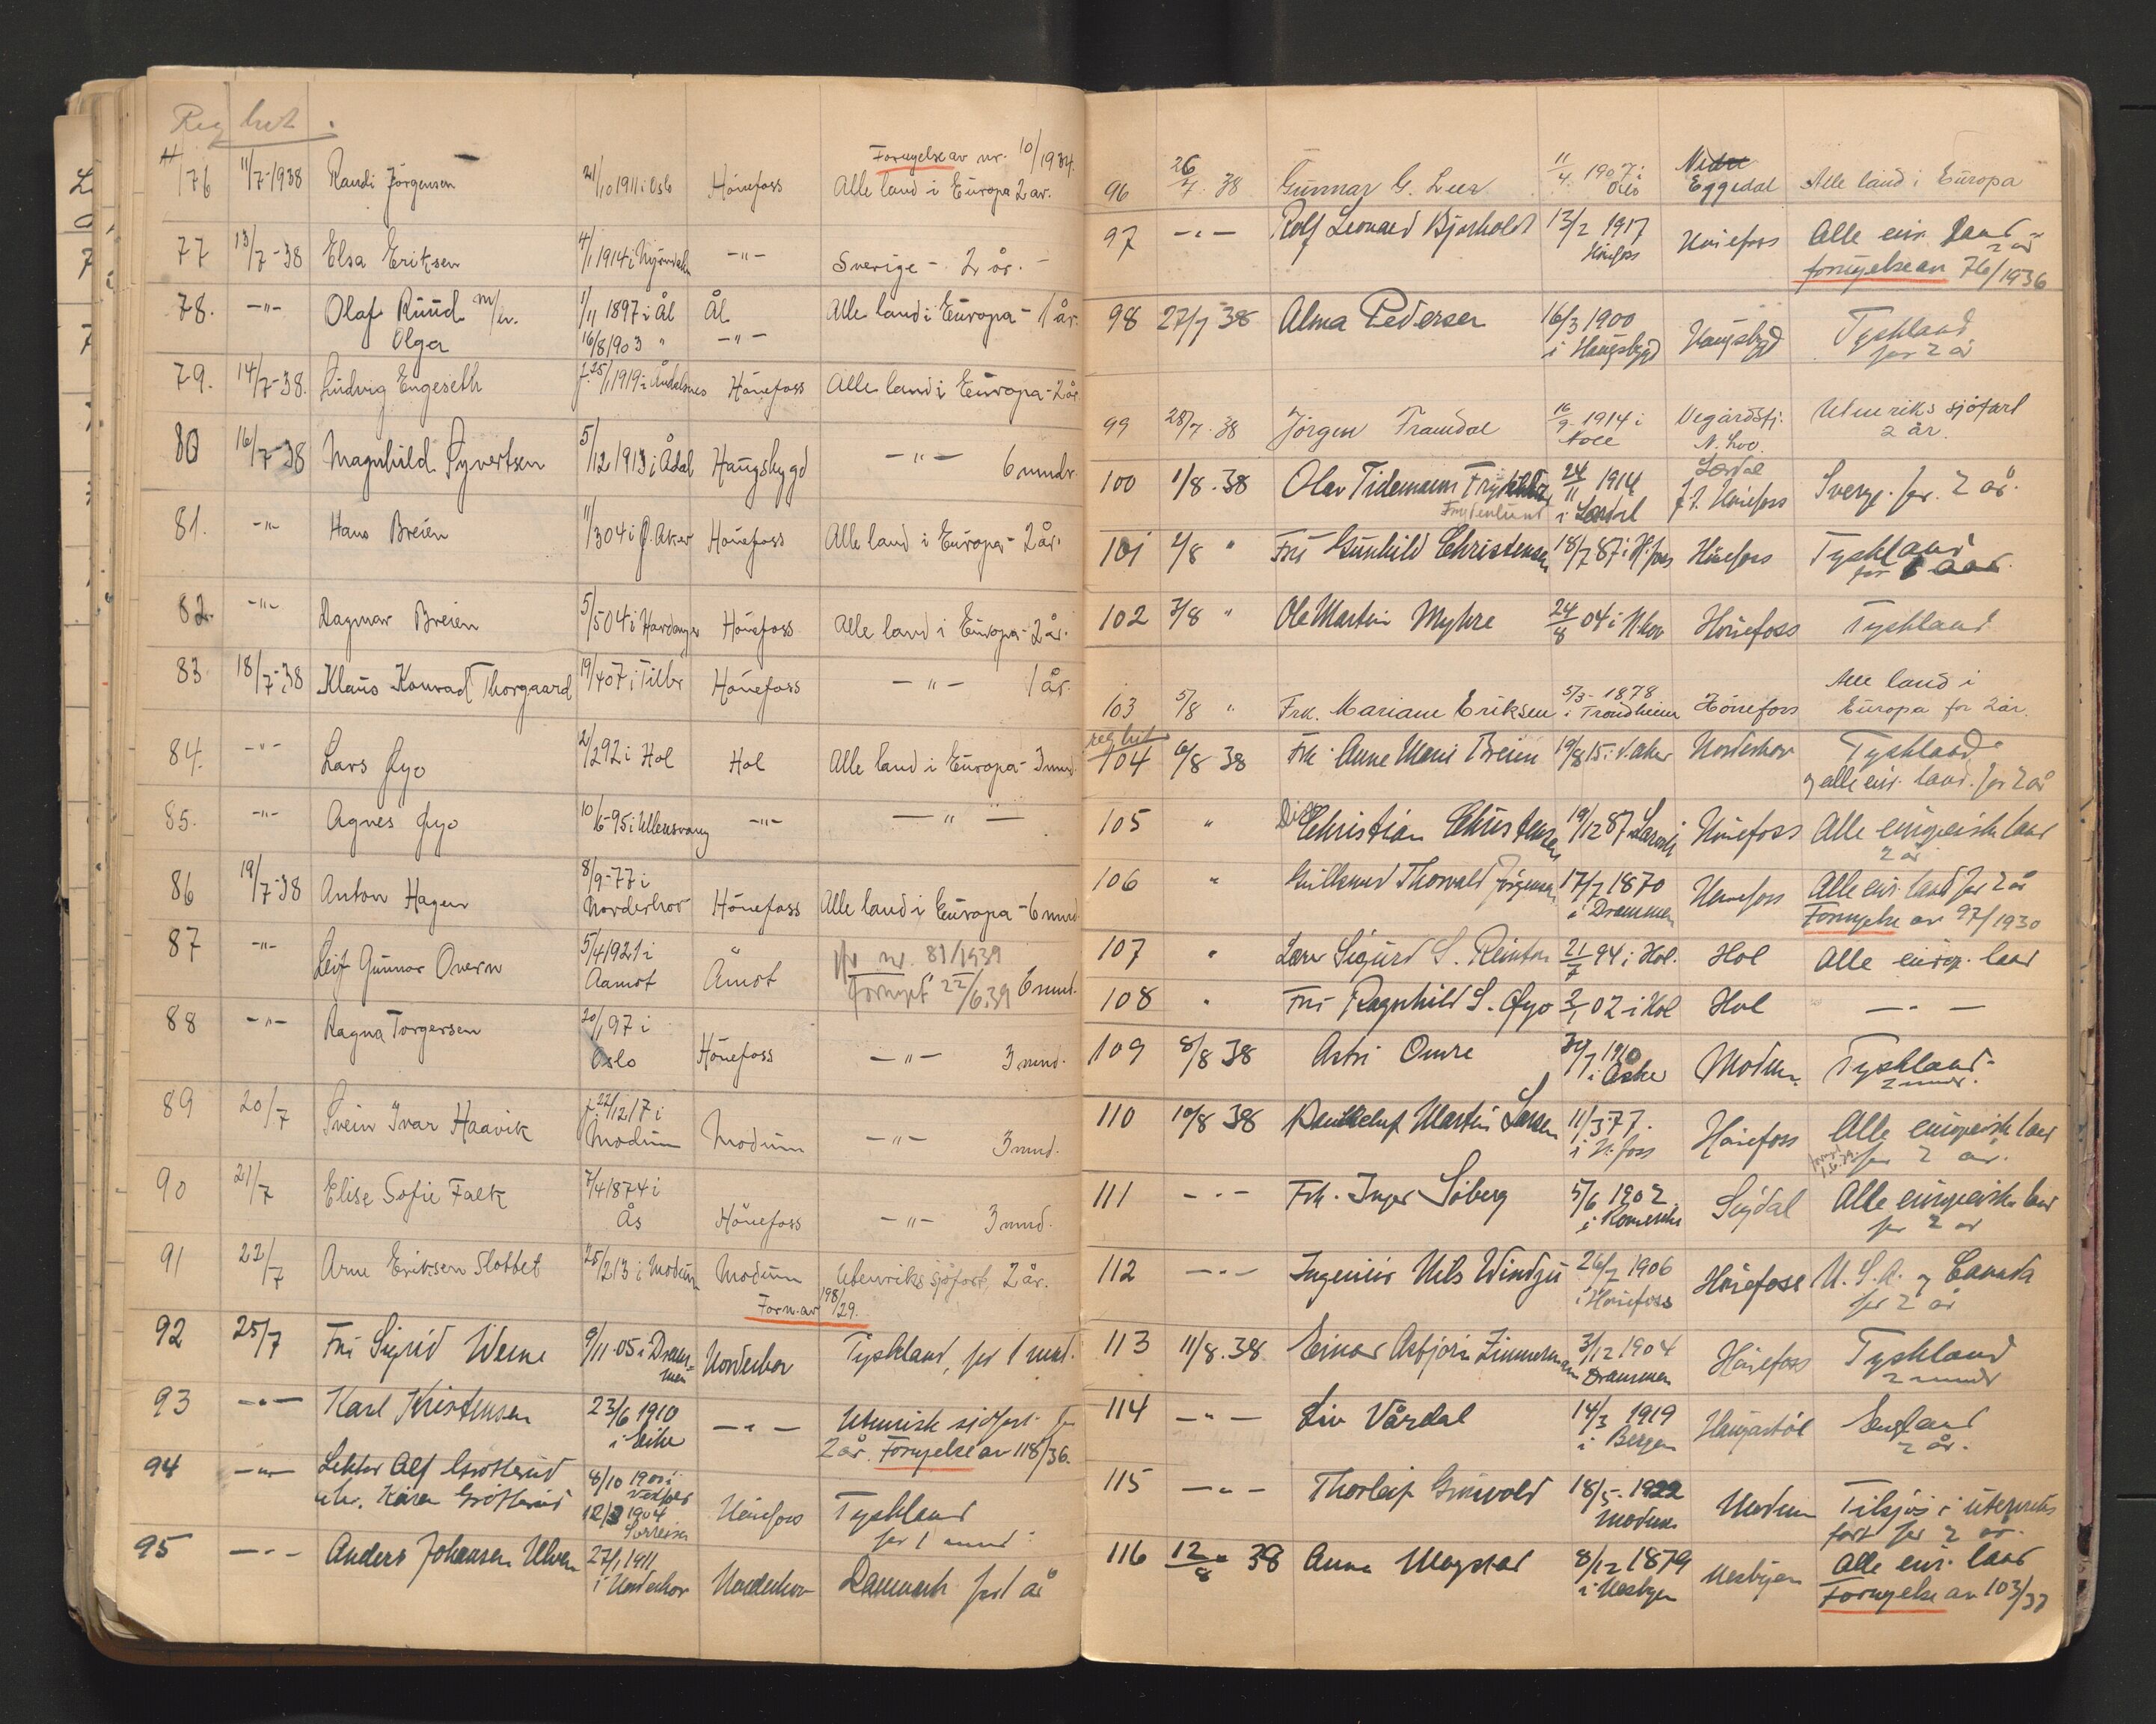 Reg
76 11/7-1938 Randi Jörgensen 21/10 1911 i Oslo Hönefoss Fornyelse av nr. 10/1934.
Alle land i Europa 2 år.
77 13/7-38 Elsa Eriksen 4/1 1914 i -"- Sverige - 2 år. -
78. -"- Olaf Ruud m/ 1/11 1897 i Ål Ål Alle land i Europa - 1 år.
Olga 16/8 1903 " -"-
79. 14/7-38. Ludvig Engeseth f. 25/1 1919 i Åndalsnes Hönefoss Alle land i Europa - 2 år
80 16/7-38 Magnhild Syvertsen 5/12 1913 i Ådal Haugsbygd -"- 6 mndr.
81. -"- Hans Breien 11/3 04 i Ø. Aker Hönefoss Alle land i Europa - 2 år.
82. -"- Dagmar Breien 5/5 04 i Hardanger Hönefoss Alle land i Europa - 2 år.
83. 18/7-38 Klaus Konrad Thorgaard 19/4 07 i Hönefoss -"- 1 år.
84. -"- Lars Øyo 2/2 92 i Hol Hol Alle land i Europa - 3 mnd.
85. -"- Agnes Øyo 10/6-95 i Ullensvang -"- -"-
86 19/7-38 Anton Hagen 8/9-77 i
Norderhov Hönefoss Alle land i Europa - 6 mnd.
87 -"- Leif Gunnar Overn 5/4 1921 i
Aamot Åmot nr. 81/1939
fornyet 22/6.39 6 mnd.
88 -"- Ragna Torgersen 20/1 97 i
Oslo Hönefoss -"- 3 mnd.
89 20/7 Svein Ivar Haavik f. 22/12 17 i
Modum Modum -"- 3 mnd.
90 21/7 Elise Sofie Falk 7/4 1874 i
Ås Hönefoss -"- 3 mnd.
91 22/7 Arne Eriksen Slottet 25/2 13 i Modum Modum Utenriks sjöfart, 2 år.
Forn. av 198/29.
92 25/7 Fru Sigrid Werne 9/11-05 i Dram-
men Norderhov Tyskland, for 1 mnd.
93 -"- Karl Kristensen 23/6 1910
i Eiker -"- Utenrisk sjöfart for
2 år. Fornyelse av 118/36.
94 -"- Lektor Alf Grötterud 8/10 1900 i
Kåren Grötterud 12/3 1904
Sørreisa Hönefoss Tyskland
for 1 mnd.
95 -"- Anders Johansen Ulven 27/1 1911
i Norderhov Norderhov Danmark for 1 år
96 26/7. 38 Gunnar G. Leer 11/4. 1907 i
Oslo Nedre
Eggedal Alle land i Europa
97 -"- Rolf Leonard Bjørholdt 13/2 1917
Hönefoss Hönefoss Alle eur. land
2 år
fornyelse av 76/1936
98 27/7 38 Alma Pedersen 16/3 1900
i Haugsbygd Haugsbygd Tyskland
for 2 år
99 28/7. 38 Jörgen Framdal 16/9. 1914 i
Vegårdsfj.
N. Utenriks sjöfart
2 år.
100 1/8. 38 Olav Tidemann 24/11 1914
Frydenlund i Lærdal Lærdal
p.t. Hönefoss Sverge for 2 år.
101 2/8 " Fru Gunhild Christensen 18/7 87 i H.foss Hönefoss Tyskland
for 1 aar.
102 3/8 " Ole Martin Myhre 24/8 04 i N.hov Hönefoss Tyskland
103 5/8 " Frk. Mariane Eriksen 5/3-1878
i Trondheim Hönefoss Alle land i
Europa for 2 år.
104 6/8 38 Frk. Anne Marie Breien 19/8 15 i V.aker Norderhov Tyskland
og alle eur. land. for 2 år
105 " Dir Christian Christensen 19/12 87 Larvik Hönefoss Alle europeiske land
2 år
106 " Thorvald Jörgensen 17/7 1870
i Drammen Hönefoss Alle eur. land for 2 år
Fornyelse av 97/1930
107 " Lars Sigurd S. Reinton 21/7 94 i Hol. Hol Alle europ. land
108 " Fru Ragnhild S. Øyo 2/1 02 i Hol Hol -"-
109 8/8 38 Astri Omre 30/7 1910
i Aske Modum Tyskland -
2 mndr.
110 10/8 38 Martin Larsen 11/3 77.
i H.foss Hönefoss Alle europeiske land
for 2 år.
111 -"- Frk. Inger Söberg 5/6 1902
i Sigdal Alle europeiske land
for 2 år
112 -"- Ingeniör Nils Windju 26/7 1906
i Hönefoss Hönefoss U.S.A. og Canada
for 2 år
113 11/8. 38 Einar Asbjörn Zimmermann 3/12 1904
Drammen Hönefoss Tyskland
2 mndr
114 -"- Liv Vårdal 14/3 1919
i Bergen Haugastöl England
2 år.
115 -"- Thorleif Grinvold 18/5-1922
Modum Modum Tilsjös i utenriks
fart for 2 år.
116 12/8 38 Anna 8/12 1879
i Nesbyen Nesbyen Alle eur. land
Fornyelse av 103/37